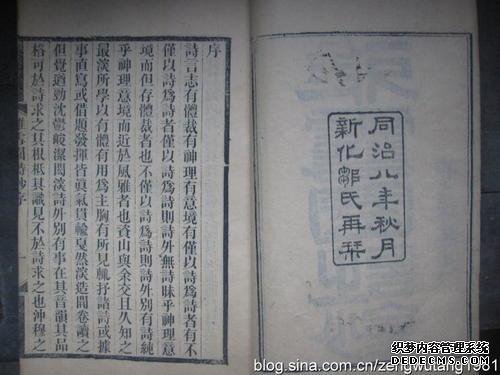 同治八年秋月
新化鄒氏再栞
序
詩言志有體裁有神理有意境有僅以詩爲詩者有不
僅以詩爲詩者僅以詩爲詩則詩外無詩昧乎神理意
境而但存體裁者也不僅以詩爲詩則詩外別有詩純
乎神理意境而近於風雅者也資山與余交且久知之
最深所學以有體有用爲主胸有所見輒抒諸詩或據
事直寫或借題發揮皆眞氣貫輪戛然深造閒卷讀之
但覺遒勁沈鬱峻潔閎深詩外別有事在其音韻其品
格可於詩求之其根柢其識見不於詩求之也沖穆之
詩鈔序
一
blog.sina.com.cn/zengwutang1981